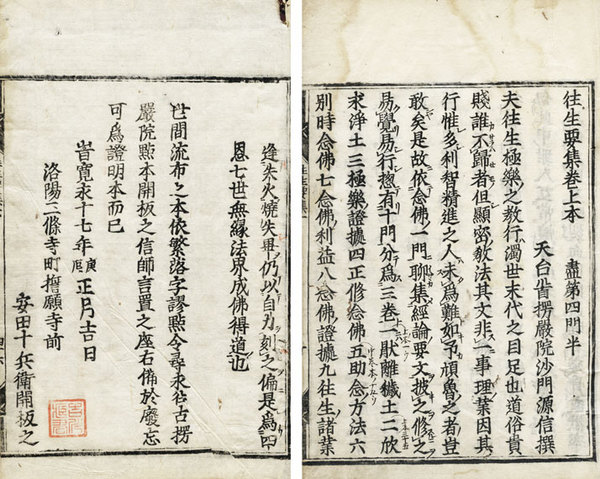 往生要集卷上本　盡第四門半
天台首楞嚴院沙門源信撰
夫往生極樂之教行濁世末代之目足也道俗貴
賤誰不歸者但顯密教法其文非一事理業因其
行惟多利智精進之人未爲難如予頑魯之者豈
敢矣是故依念佛一門聊集經論要文披之修之
易覺易行惣有十門分爲三卷一猒離穢土二欣
求淨土三極樂證據四正修念佛五助念方法六
別時念佛七念佛利益八念佛證據九往生諸業
逢失火燒失畢仍以自力刻之偏是爲四
恩七世無緣法界成佛得道也
世間流布之本依繁落字謬點今尋求往古楞
嚴院點本開板之信師言置之座右備於廢忘
可爲證明本而已
旹寬永十七年庚辰正月吉日
洛陽二條寺町擔願寺前
安田十兵衛開板之